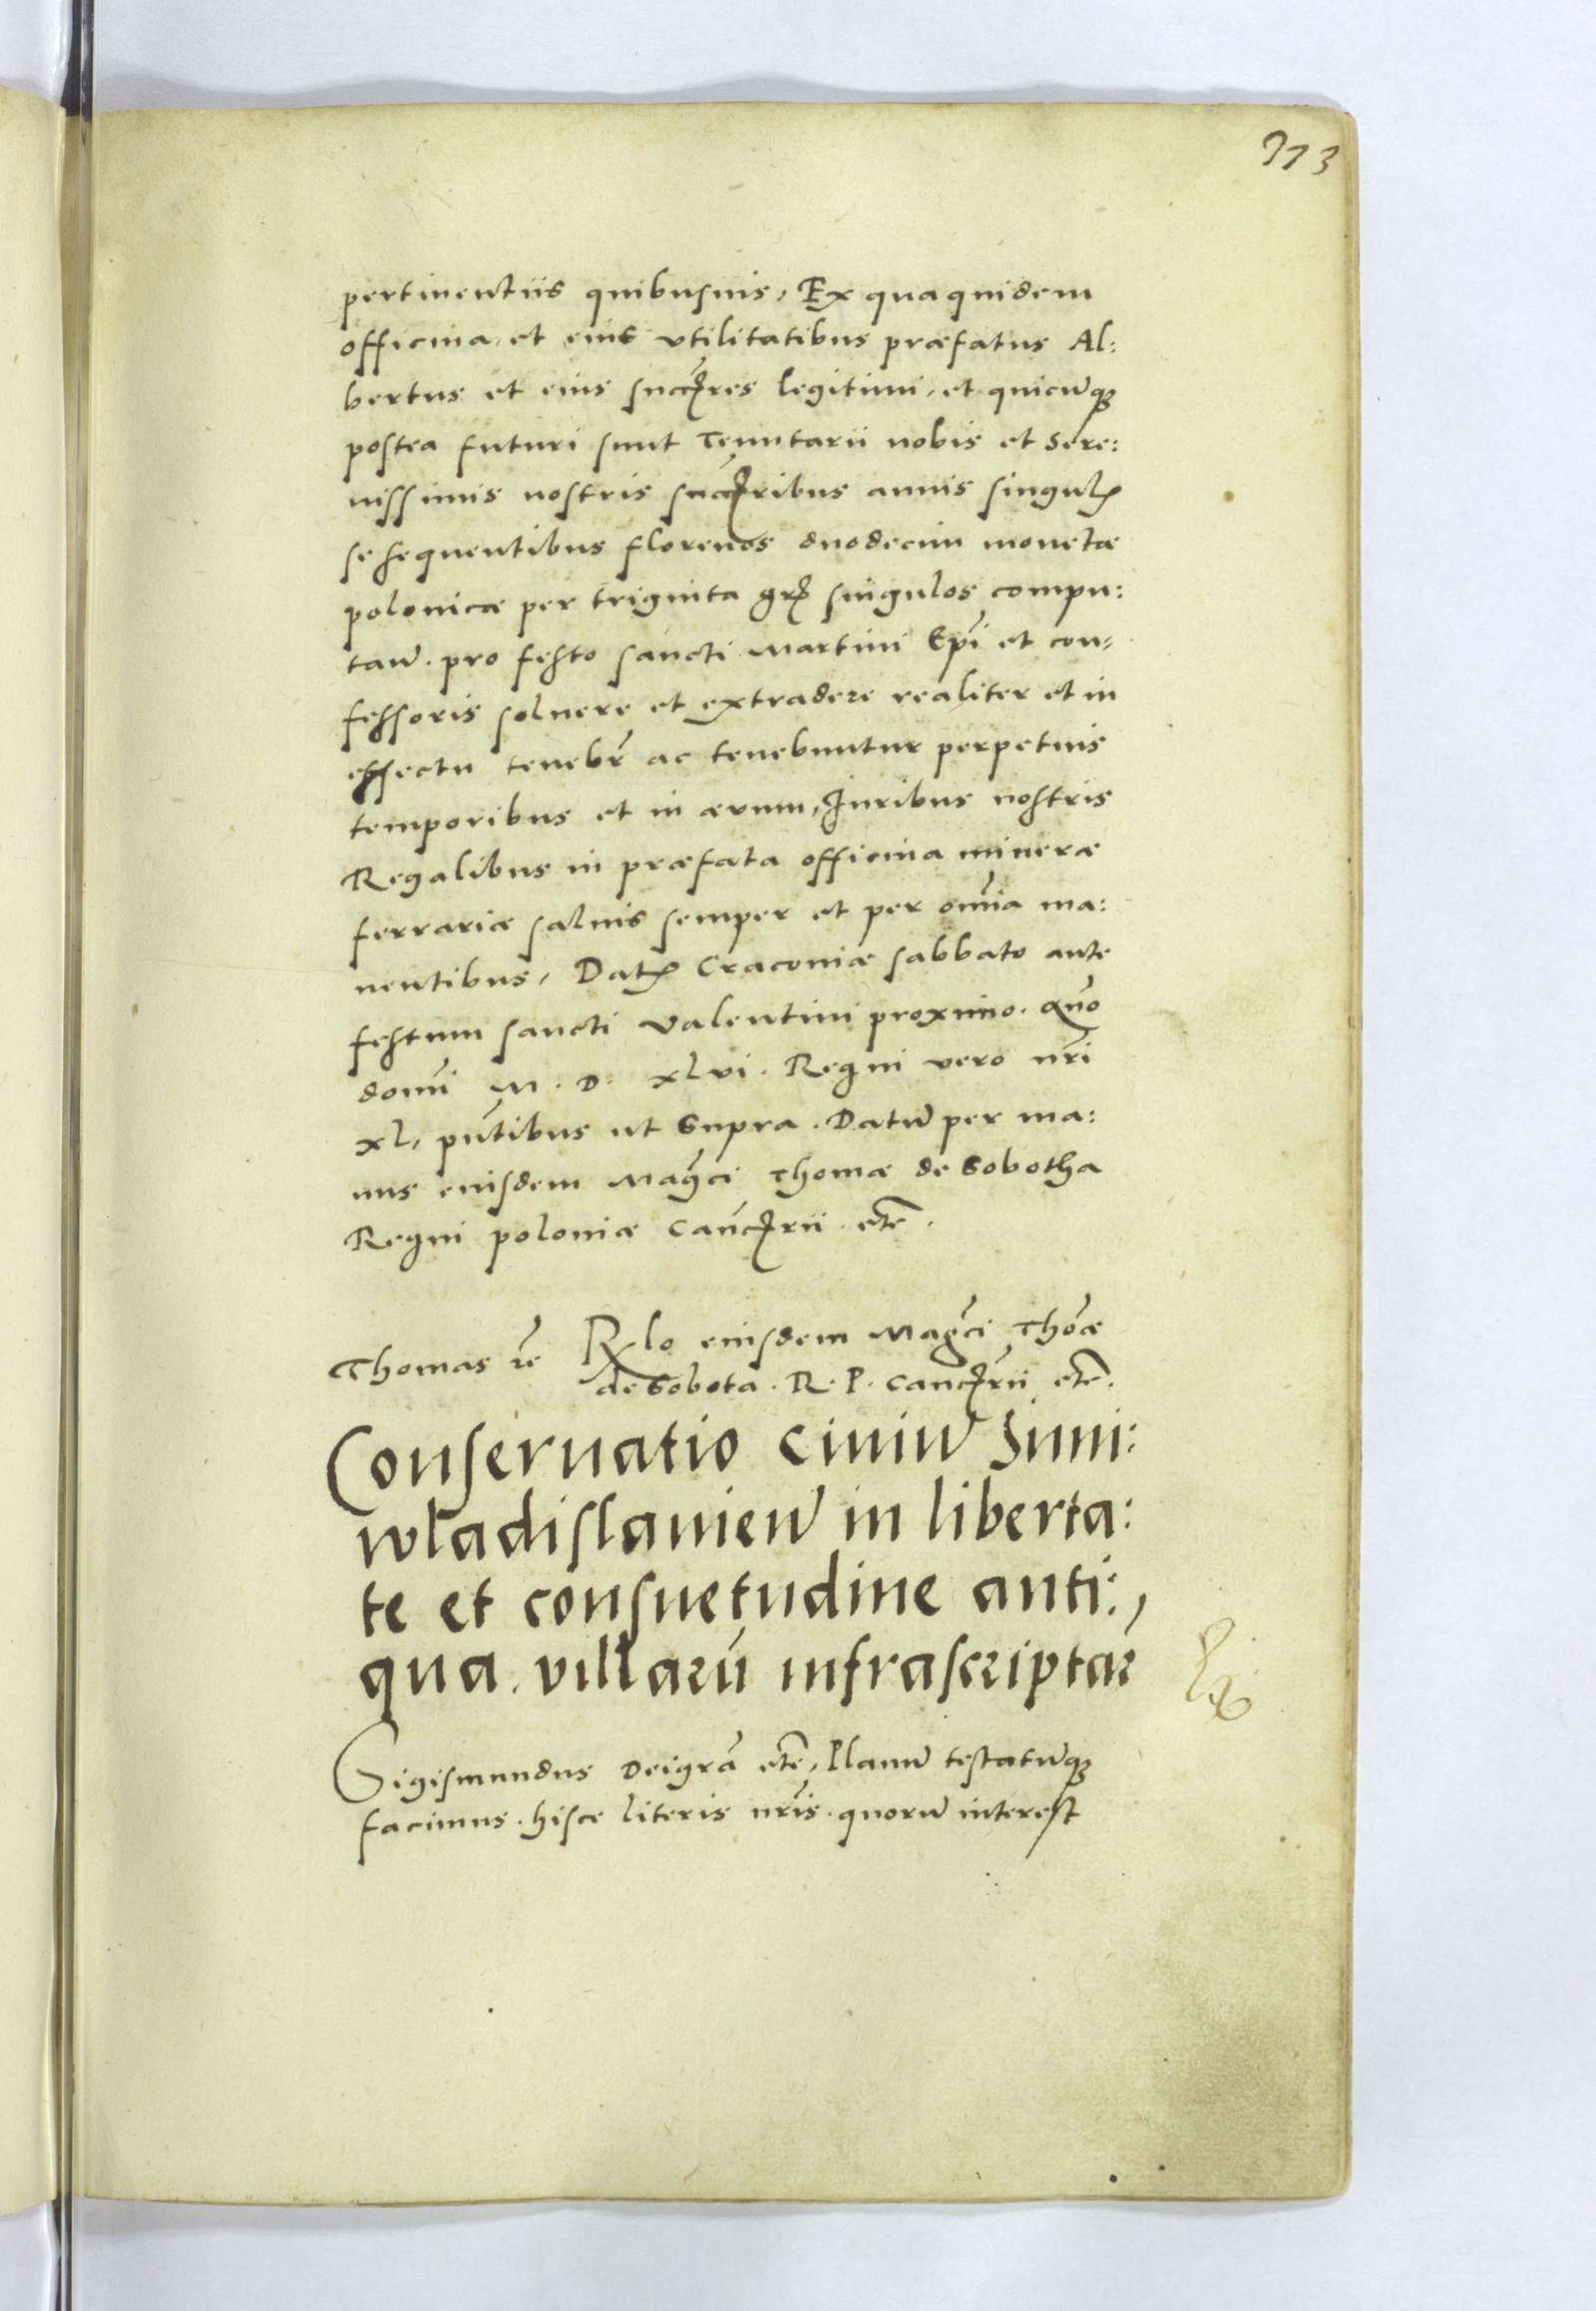 973
pertinentiis quibusuis, Ex qua quidem
officina, et eius vtilitatibus præfatus Al:
bertus et eius succ̃res legitimi, et quicunq̃
postea futuri sunt Tenutarii nobis et Sere:
nissimis nostris succ̃ribus annis singul̃
se sequentibus florenos duodecim monetæ
polonicæ per triginta gr̃ singulos compu:
tañ. pro festo sancti Martini Ep̃i et con-
fessoris soluere et extradere realiter et in
effectu tenebr̃ ac tenebuntur perpetuis
temporibus et in æuum, Iuribus nostris
Regalibus in præfata officina mineræ
ferrariæ saluis semper et per om̃ia ma:
nentibus, Dat̃ Cracouiæ sabbato ante
festum sancti Valentini proximo. Año
domĩ M. D. xlvi. Regni vero nr̃i
xl, pñtibus ut Supra. Datũ per ma:
nus eiusdem Mag̃ci Thomæ de Sobotha
Regni poloniæ Canc̃rii. etc̃.
Thomas r̃e Rx̃lo eiusdem Mag̃ci Thõæ
de Sobota. R. P. Canc̃rii etc̃.
Conseruatio Ciuiũ Iuni:
wladislauieñ in liberta:
te et consuetudine anti:,
qua. villarũ infrascriptar̃
Sigismundus Dei gr̃a etc̃, Planũ testatũq̃
facimus. hisce literis nr̃is. quorũ interest